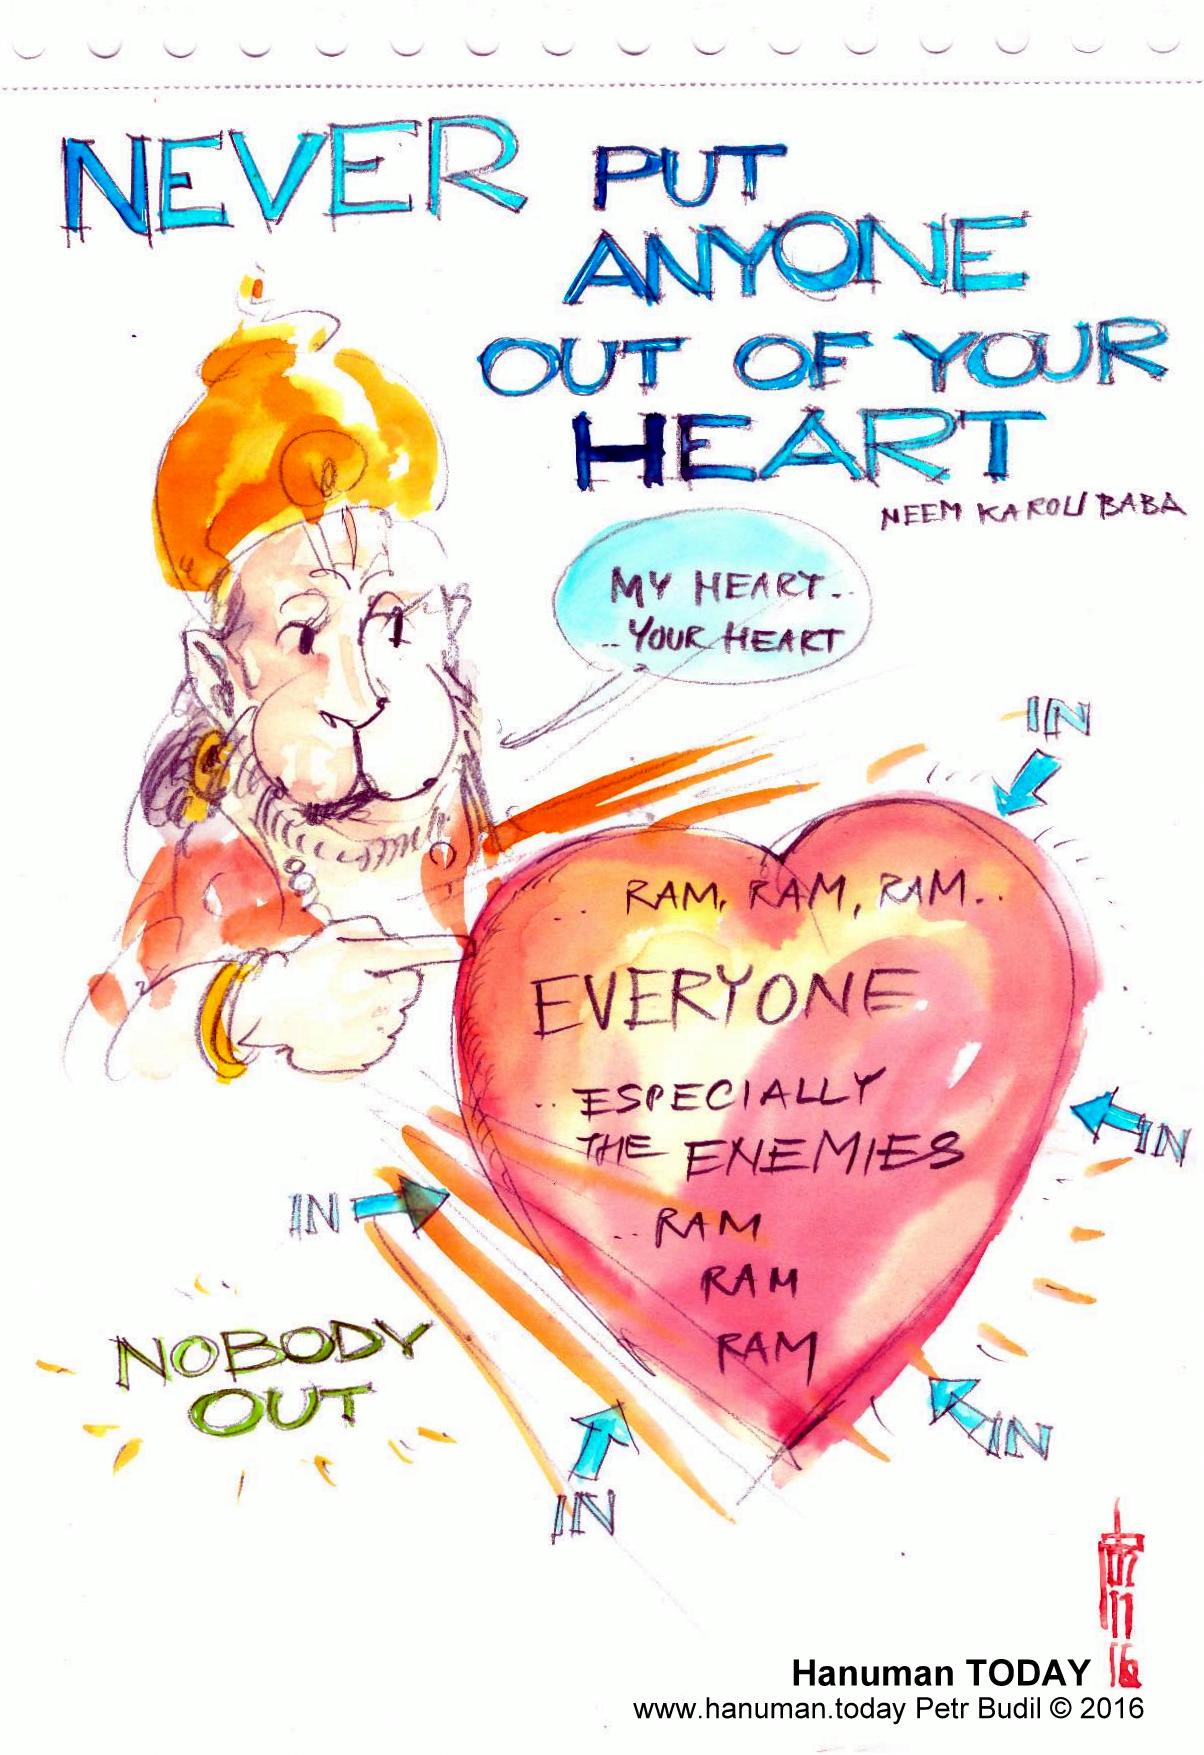 NEVER PUT
ANYONE
OUT OF YOUR
HEART
NEEM KAROLI BABA
MY HEART..
..YOUR HEART
IN
... RAM, RAM, RAM...
EVERYONE
...ESPECIALLY
THE ENEMIES
...RAM
RAM
RAM
IN
IN
NOBODY
OUT
IN
IN
02
11
16
Hanuman TODAY
www.hanuman.today Petr Budil © 2016